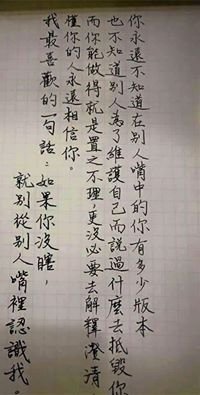 你永遠不知道在別人嘴中的你有多少版本
也不知道別人為了維護自己而說過什麼去抵毀你
而你能做得就是置之不理，更沒必要去解釋澄清，
懂你的人永遠相信你。
我最喜歡的一句話：如果你沒瞎，
就別從別人嘴裡認識我。